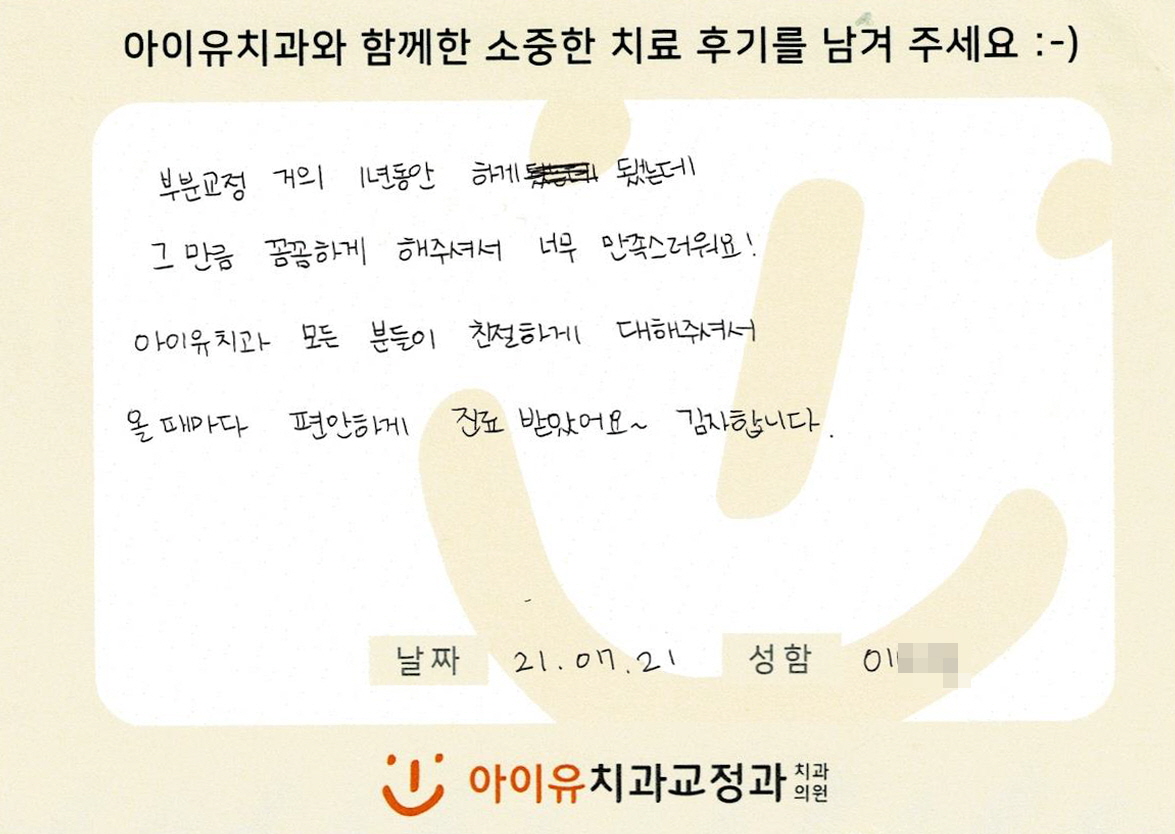 아이유치과와 함께한 소중한 치료 후기를 남겨 주세요 :-)
부분교정 거의 1년동안 하게 됐는데
그 만큼 꼼꼼하게 해주셔서 너무 만족스러워요!
아이유치과 모든 분들이 친절하게 대해주셔서
올 때마다 편안하게 진료 받았어요~ 감사합니다.
날짜 21.07.21 성함 이
아이유치과교정과 치과
의원